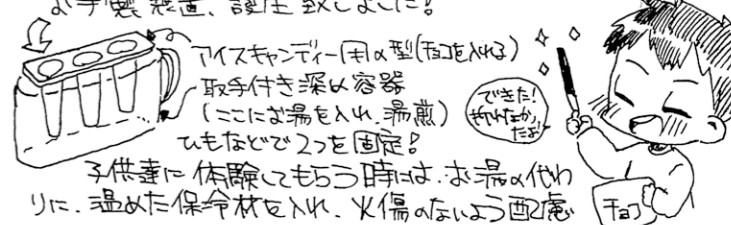 お手製装置、誕生致しました!
アイスキャンディー用の型(チョコを入れる)
取手付き深め容器
(ここにお湯を入れ、湯煎)
ひもなどで2つを固定!
できた!
折れなかったよ
子供達に体験してもらう時には、お湯の代わ
りに、温めた保冷材を入れ、火傷のないよう配慮
チョコ